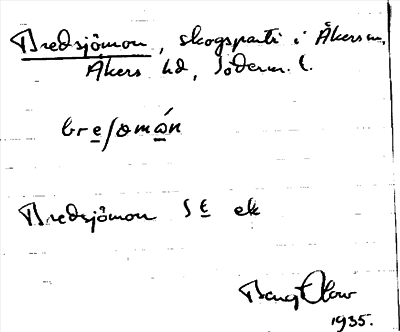 Bredsjömon, skogsparti i Åkers sn,
Åkers hd, Söderm. l.
breſomán
Bredsjömon SE ek
Bengt Olow
1935.